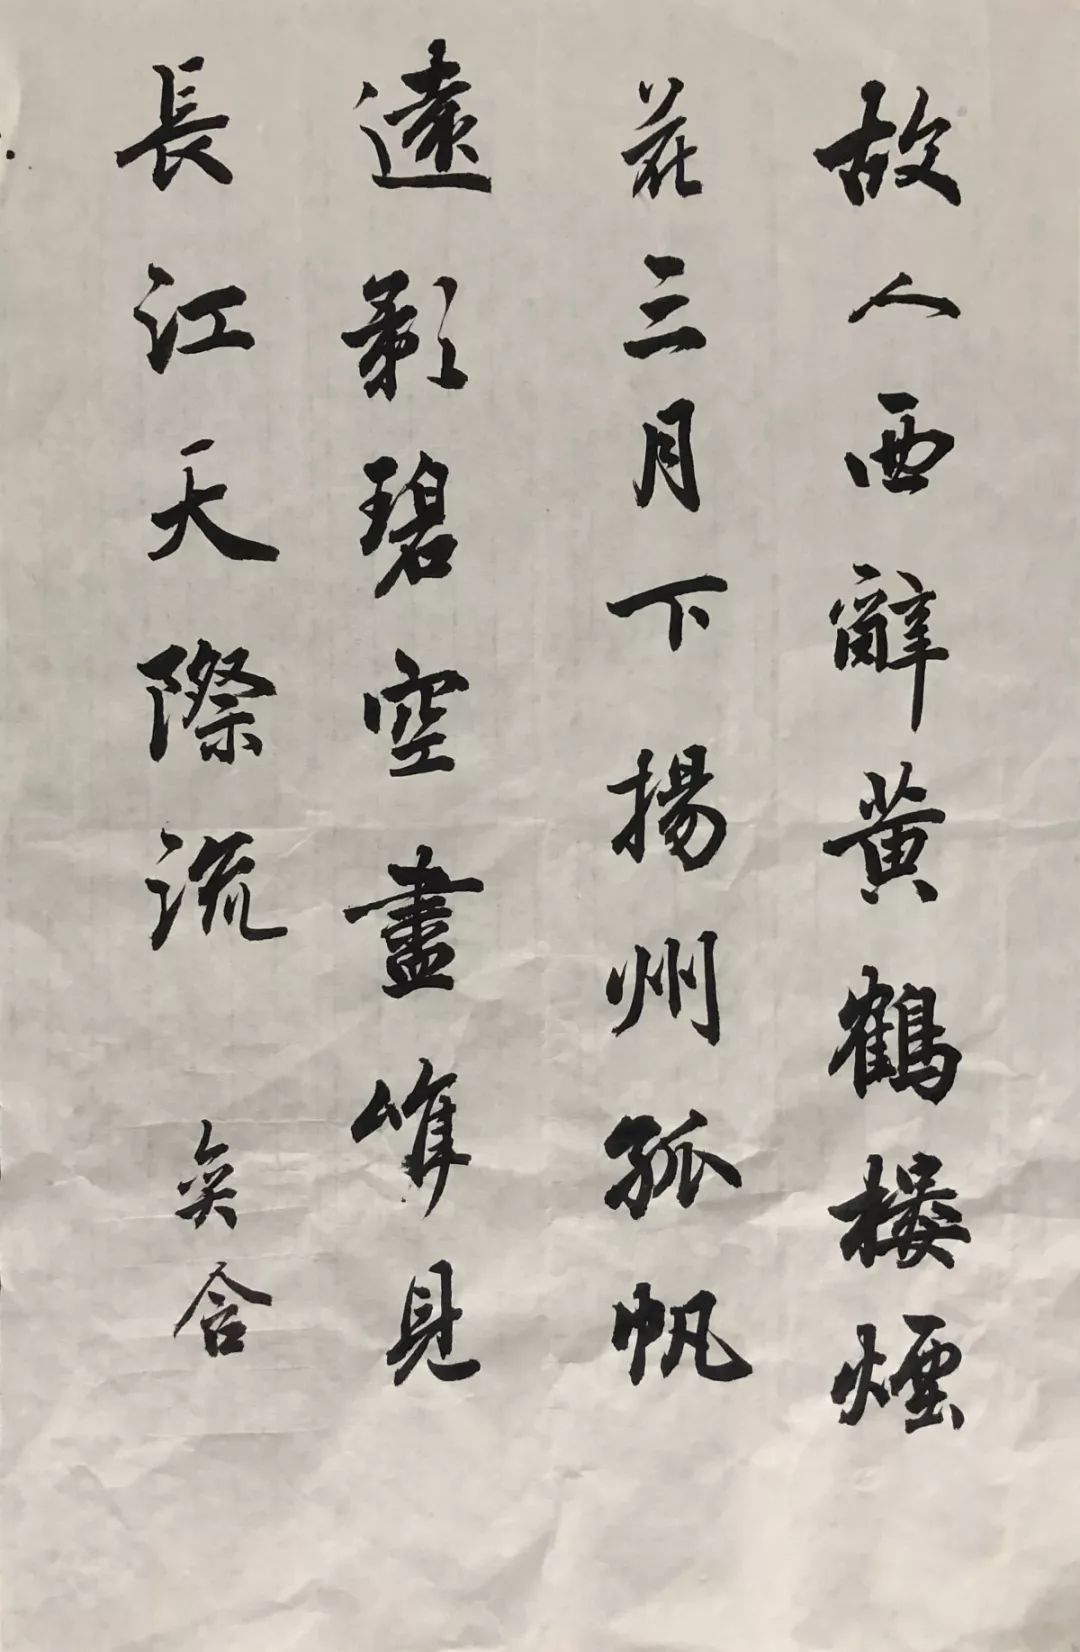 故人西辭黄鶴楼煙
花三月下揚州孤帆
遠影碧空盡唯見
長江天際流 奕含